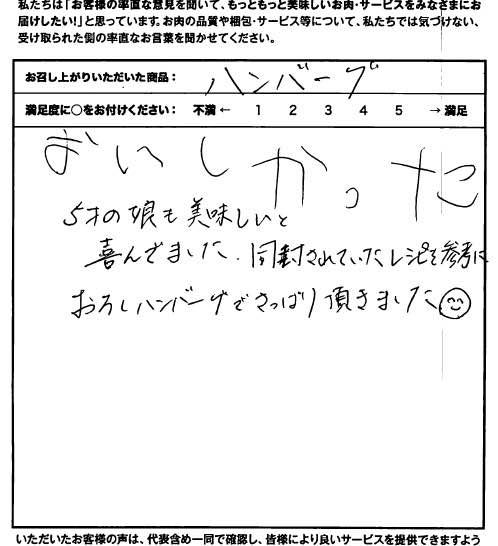 私たちは「お客様の率直な意見を聞いて、もっともっと美味しいお肉・サービスをみなさまにお
届けしたい!」と思っています。お肉の品質や梱包・サービス等について、私たちでは気づけない、
受け取られた側の率直なお言葉を聞かせてください。
お召し上がりいただいた商品： ハンバーグ
満足度に○をお付けください： 不満 ← 1 2 3 4 5 → 満足
おいしかった
5才の娘も美味しいと
喜んでました。同封されていたレシピを参考に
おろしハンバーグでさっぱり頂きました
いただいたお客様の声は、代表含め一同で確認し、皆様により良いサービスを提供できますよう